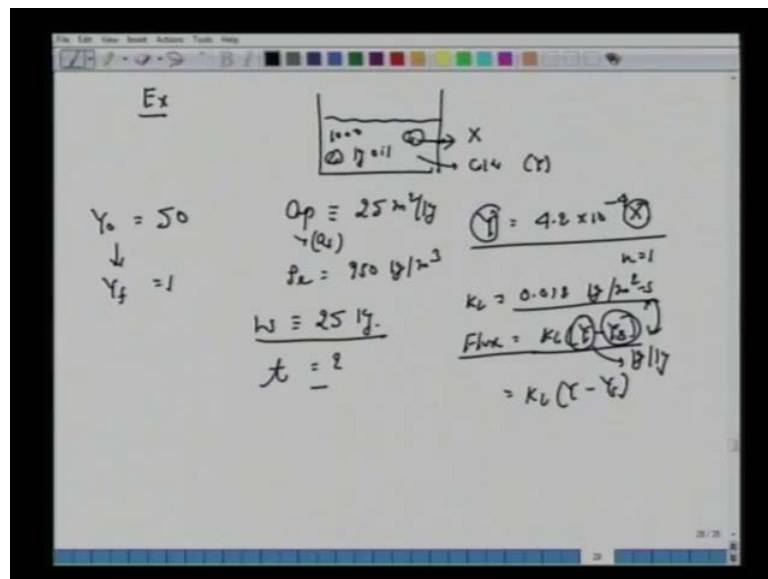 File Edit View Insert Actions Tools Help
Ex
1000
kg oil
X
(Y)
Y₀ = 50
↓
Y_f = 1
a_p ≡ 25 m²/kg
950 kg/m³
W ≡ 25 kg.
t = ?
Y = 4.2 × 10⁻⁴ X
n=1
K_L = 0.018 kg/m²-s
Flux = K_L
kg/kg
= K_L (Y - Y_s)